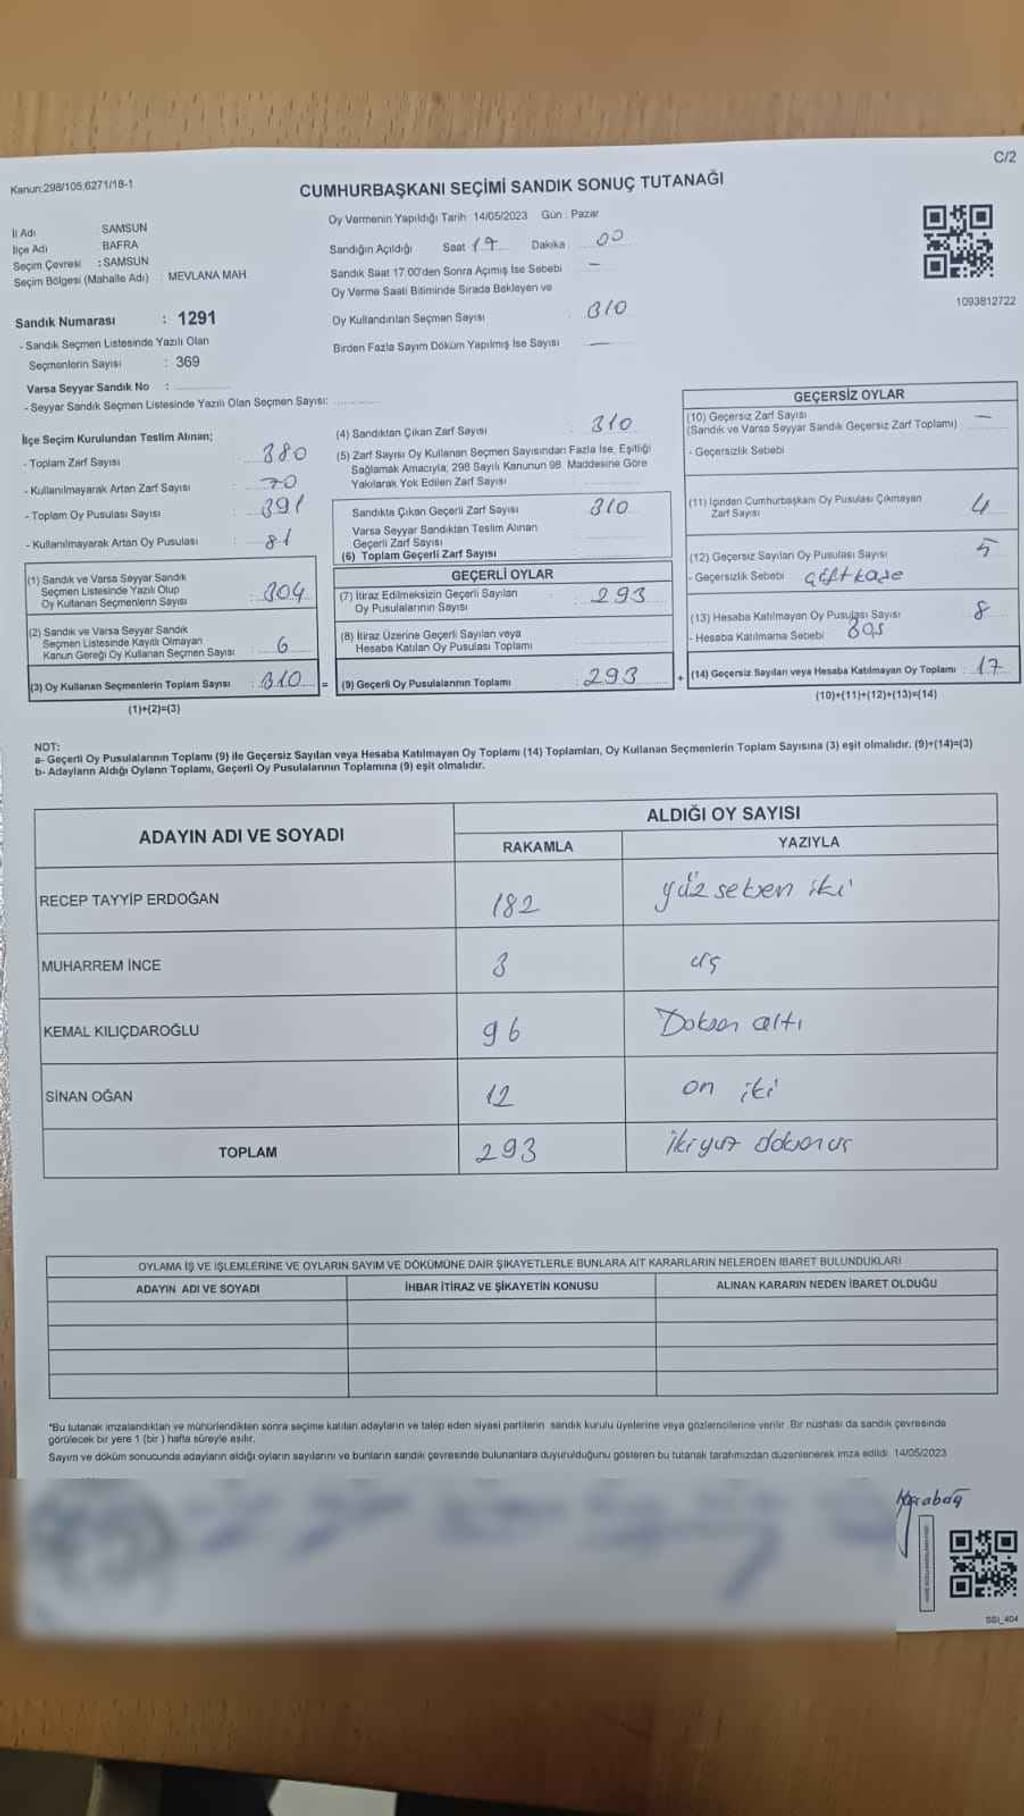 C/2
Kanun:298/105,6271/18-1
CUMHURBAŞKANI SEÇİMİ SANDIK SONUÇ TUTANAĞI
İl Adı SAMSUN
İlçe Adı BAFRA
Seçim Çevresi : SAMSUN
Seçim Bölgesi (Mahalle Adı) : MEVLANA MAH
Sandık Numarası : 1291
- Sandık Seçmen Listesinde Yazılı Olan
Seçmenlerin Sayısı : 369
Varsa Seyyar Sandık No :
- Seyyar Sandık Seçmen Listesinde Yazılı Olan Seçmen Sayısı:
Oy Vermenin Yapıldığı Tarih 14/05/2023 Gün : Pazar
Sandığın Açıldığı Saat 17 Dakika 00
Sandık Saat 17.00'den Sonra Açımış İse Sebebi —
Oy Verme Saati Bitiminde Sırada Bekleyen ve
Oy Kullandırılan Seçmen Sayısı : 310
Birden Fazla Sayım Döküm Yapılmış İse Sayısı —
1093812722
İlçe Seçim Kurulundan Teslim Alınan;
- Toplam Zarf Sayısı : 380
- Kullanılmayarak Artan Zarf Sayısı : 70
- Toplam Oy Pusulası Sayısı : 391
- Kullanılmayarak Artan Oy Pusulası : 81
(1) Sandık ve Varsa Seyyar Sandık
Seçmen Listesinde Yazılı Olup
Oy Kullanan Seçmenlerin Sayısı : 304
(2) Sandık ve Varsa Seyyar Sandık
Seçmen Listesinde Kayıtlı Olmayan
Kanun Gereği Oy Kullanan Seçmen Sayısı : 6
(3) Oy Kullanan Seçmenlerin Toplam Sayısı : 310 =
(1)+(2)=(3)
(4) Sandıktan Çıkan Zarf Sayısı : 310
(5) Zarf Sayısı Oy Kullanan Seçmen Sayısından Fazla İse, Eşitliği
Sağlamak Amacıyla, 298 Sayılı Kanunun 98. Maddesine Göre
Yakılarak Yok Edilen Zarf Sayısı
Sandıkta Çıkan Geçerli Zarf Sayısı : 310
Varsa Seyyar Sandıktan Teslim Alınan
Geçerli Zarf Sayısı
(6) Toplam Geçerli Zarf Sayısı
GEÇERLİ OYLAR
(7) İtiraz Edilmeksizin Geçerli Sayılan
Oy Pusulalarının Sayısı : 293
(8) İtiraz Üzerine Geçerli Sayılan veya
Hesaba Katılan Oy Pusulası Toplamı
(9) Geçerli Oy Pusulalarının Toplamı : 293 +
GEÇERSİZ OYLAR
(10) Geçersiz Zarf Sayısı —
(Sandık ve Varsa Seyyar Sandık Geçersiz Zarf Toplamı)
- Geçersizlik Sebebi
(11) İçinden Cumhurbaşkanı Oy Pusulası Çıkmayan
Zarf Sayısı 4
(12) Geçersiz Sayılan Oy Pusulası Sayısı 5
- Geçersizlik Sebebi çift kaşe
(13) Hesaba Katılmayan Oy Pusulası Sayısı 8
- Hesaba Katılmama Sebebi Boş
(14) Geçersiz Sayılan veya Hesaba Katılmayan Oy Toplamı : 17
(10)+(11)+(12)+(13)=(14)
NOT:
a- Geçerli Oy Pusulalarının Toplamı (9) ile Geçersiz Sayılan veya Hesaba Katılmayan Oy Toplamı (14) Toplamları, Oy Kullanan Seçmenlerin Toplam Sayısına (3) eşit olmalıdır. (9)+(14)=(3)
b- Adayların Aldığı Oyların Toplamı, Geçerli Oy Pusulalarının Toplamına (9) eşit olmalıdır.
ADAYIN ADI VE SOYADI ALDIĞI OY SAYISI
RAKAMLA YAZIYLA
RECEP TAYYİP ERDOĞAN 182 yüz seksen iki
MUHARREM İNCE 3 üç
KEMAL KILIÇDAROĞLU 96 Doksan altı
SİNAN OĞAN 12 on iki
TOPLAM 293 ikiyüz doksanüç
OYLAMA İŞ VE İŞLEMLERİNE VE OYLARIN SAYIM VE DÖKÜMÜNE DAİR ŞİKAYETLERLE BUNLARA AİT KARARLARIN NELERDEN İBARET BULUNDUKLARI
ADAYIN ADI VE SOYADI İHBAR İTİRAZ VE ŞİKAYETİN KONUSU ALINAN KARARIN NEDEN İBARET OLDUĞU
*Bu tutanak imzalandıktan ve mühürlendikten sonra seçime katılan adayların ve talep eden siyasi partilerin sandık kurulu üyelerine veya gözlemcilerine verilir. Bir nüshası da sandık çevresinde
görülecek bir yere 1 (bir ) hafta süreyle asılır.
Sayım ve döküm sonucunda adayların aldığı oyların sayılarını ve bunların sandık çevresinde bulunanlara duyurulduğunu gösteren bu tutanak tarafımızdan düzenlenerek imza edildi. 14/05/2023
Karabağ
SSI_404